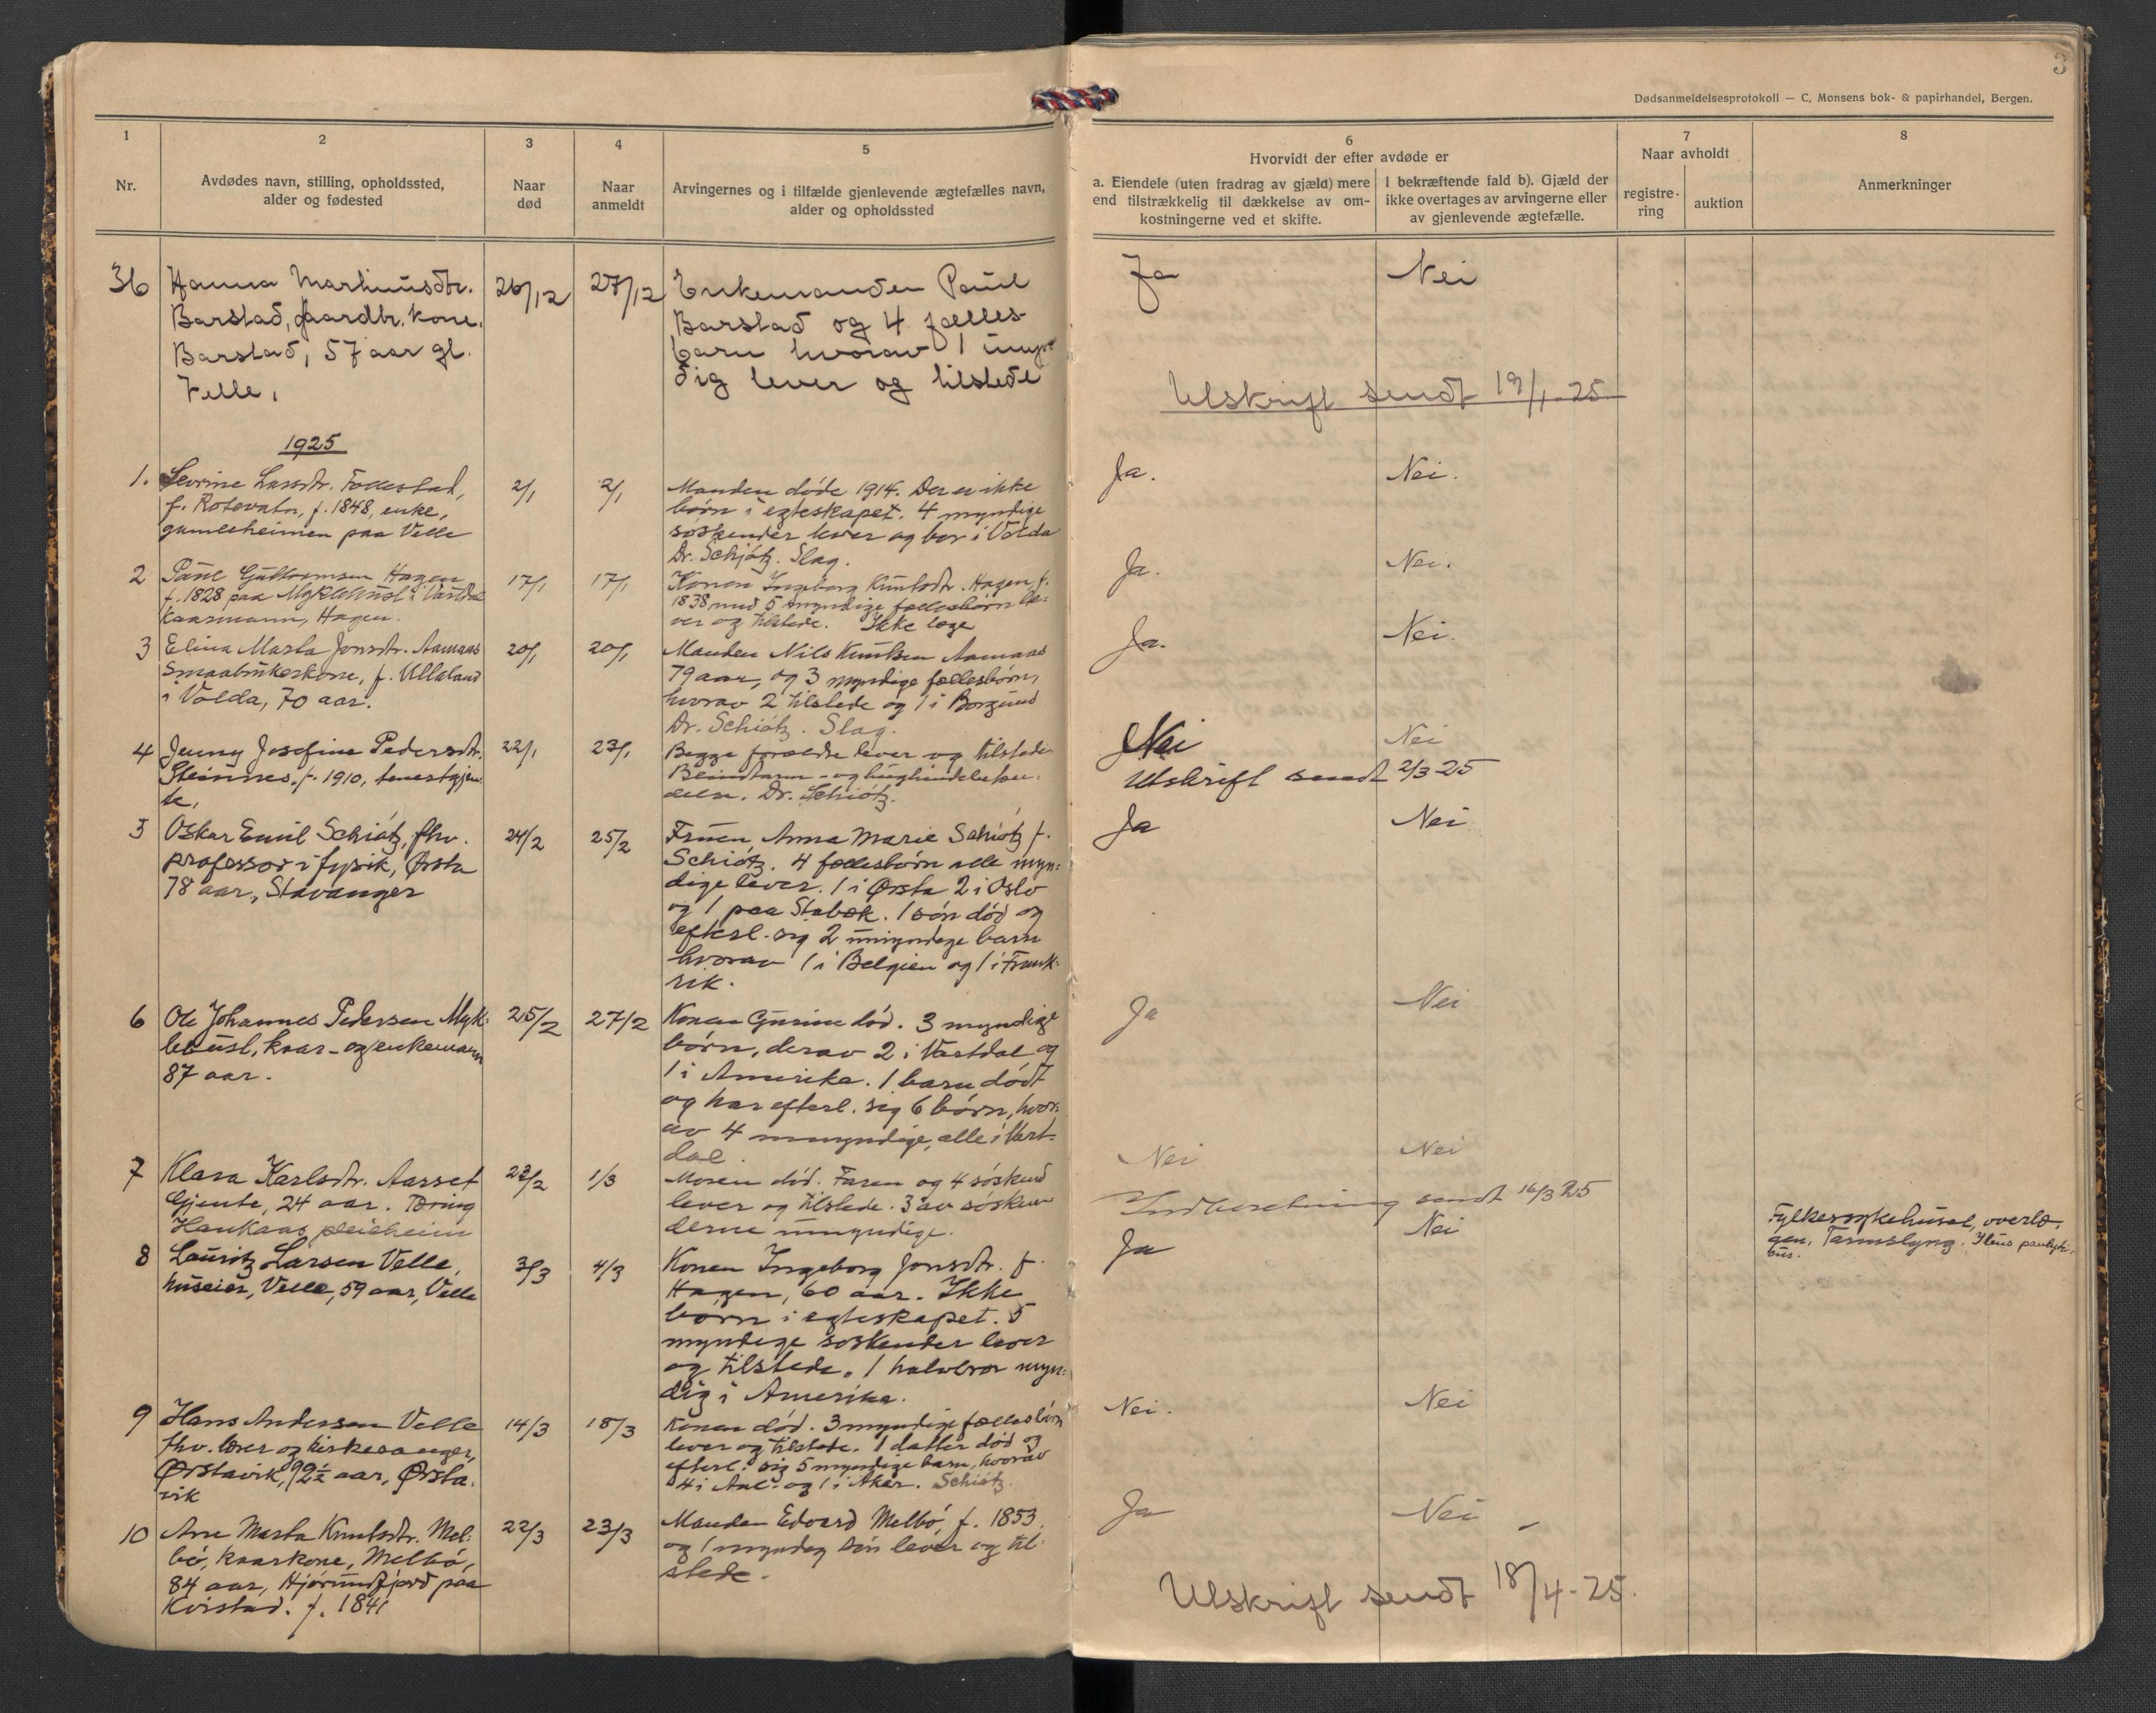 3
Dødsanmeldelsesprotokoll — C. Monsens bok- & papirhandel, Bergen.
1
Nr.
2
Avdødes navn, stilling, opholdssted,
alder og fødested
3
Naar
død
4
Naar
anmeldt
5
Arvingernes og i tilfælde gjenlevende ægtefælles navn,
alder og opholdssted
6
Hvorvidt der efter avdøde er
a. Eiendele (uten fradrag av gjæld) mere
end tilstrækkelig til dækkelse av om-
kostningerne ved et skifte.
I bekræftende fald b). Gjæld der
ikke overtages av arvingerne eller
av gjenlevende ægtefælle.
7
Naar avholdt
registre-
ring
auktion
8
Anmerkninger
36
Hanna Marhinusdtr.
Barstad, gaardbr. kone.
Barstad, 57 aar gl.
Velle.
26/12
27/12
Enkemanden Paul
Barstad og 4 fælles-
barn hvorav 1 umyn
dig lever og tilstede
Ja
Nei
Utskrift sendt 19/1-25
1925
1.
Sevrine Larsdtr. Follestad,
f. Rotevatn, f. 1848, enke,
gamleheimen paa Velle
2/1
2/1
Manden døde 1914. Der er ikke
børn i egteskapet. 4 myndige
søskender lever og bor i Volda
Dr. Schiötz. Slag.
Ja.
Nei.
2
Paul Guttormsen Hagen
f. 1828 paa Myklebust i Vartdal
kaarmann, Hagen.
17/1
17/1
Konen Ingeborg Knutsdtr. Hagen, f.
1838 med 5 myndige fællesbørn le-
ver og tilstede. Ikke læge
Ja.
Nei.
3
Elina Marta Jonsdtr. Aamaas
Smaabrukerkone, f. Ulleland
i Volda, 70 aar.
20/1
20/1
Manden Nils Knutsen Aamaas
79 aar, og 3 myndige fællesbørn,
hvorav 2 tilstede og 1 i Borgund
Dr. Schiötz. Slag.
Ja.
Nei.
4
Jenny Josefine Pedersdtr.
Steinnes. f. 1910, tenestgjen
te.
22/1
23/1
Begge forældre lever og tilstede
Blindtarm- og bughindebeten-
delse. Dr. Schiötz.
Nei
Nei
Utskrift sendt 2/3 25
5
Oskar Emil Schiötz, fhv.
professor i fysik, Ørsta
78 aar, Stavanger
24/2
25/2
Fruen Anna Marie Schiötz f.
Schiötz. 4 fællesbørn alle myn-
dige lever. 1 i Ørsta 2 i Oslo
og 1 paa Stabæk. 1 søn død og
efterl. sig 2 umyndige barn
hvorav 1 i Belgien og 1 i Frank-
rik.
Ja
Nei
6
Ole Johannes Pedersen Myk-
lebust, kaar- og enkemann
87 aar.
25/2
27/2
Konen Gurine død. 3 myndige
børn, derav 2 i Vartdal og
1 i Amerika. 1 barn dødt
og har efterl. sig 6 børn, hvor-
av 4 umyndige, alle i Vart-
dal.
Ja
Nei
7
Klara Karlsdtr. Aarset
Gjente, 24 aar. Tæring
Haukaas pleieheim
23/2
1/3
Moren død. Faren og 4 søskend
lever og tilstede. 3 av søsken
derne umyndige.
Nei
Nei
Indberetning sendt 16/3 25
8
Lauritz Larsen Velle,
huseier, Velle, 59 aar, Velle
3/3
4/3
Konen Ingeborg Jonsdtr. f.
Hagen, 60 aar. Ikke
børn i egteskapet. 5
myndige søskender lever
og tilstede. 1 halvbror myn-
dig i Amerika.
Ja
Nei
Fylkessykehuset, overlæ-
gen. Tarmslyng. Ileus paralyti-
cus.
9
Hans Andersen Velle
fhv. lærer og kirkesanger,
Ørstavik, 92½ aar, Ørsta-
vik
14/3
18/3
Konen død. 3 myndige fællesbørn
lever og tilstede. 1 datter død og
efterl. sig 5 myndige barn, hvorav
4 i og 1 i Aker. Schiötz.
Nei.
Nei
10
Ane Marta Knutsdtr. Mel-
bø, kaarkone, Melbø,
84 aar, Hjørundfjord paa
Kvistad. f. 1841
22/3
23/3
Manden Edvard Melbø, f. 1853.
og 1 myndig søn lever og til-
stede.
Ja
Nei
Utskrift sendt 18/4-25.